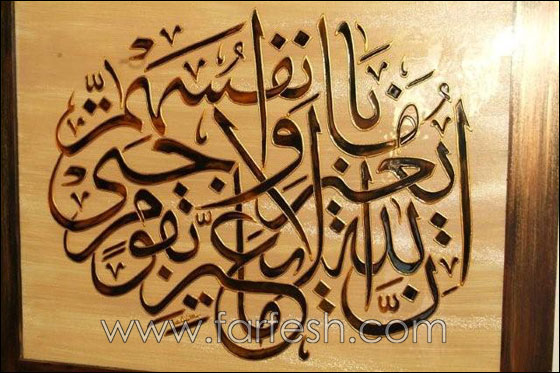 إن الله لا يغير ما بقوم حتى يغيروا ما بأنفسهم
www.farfesh.com